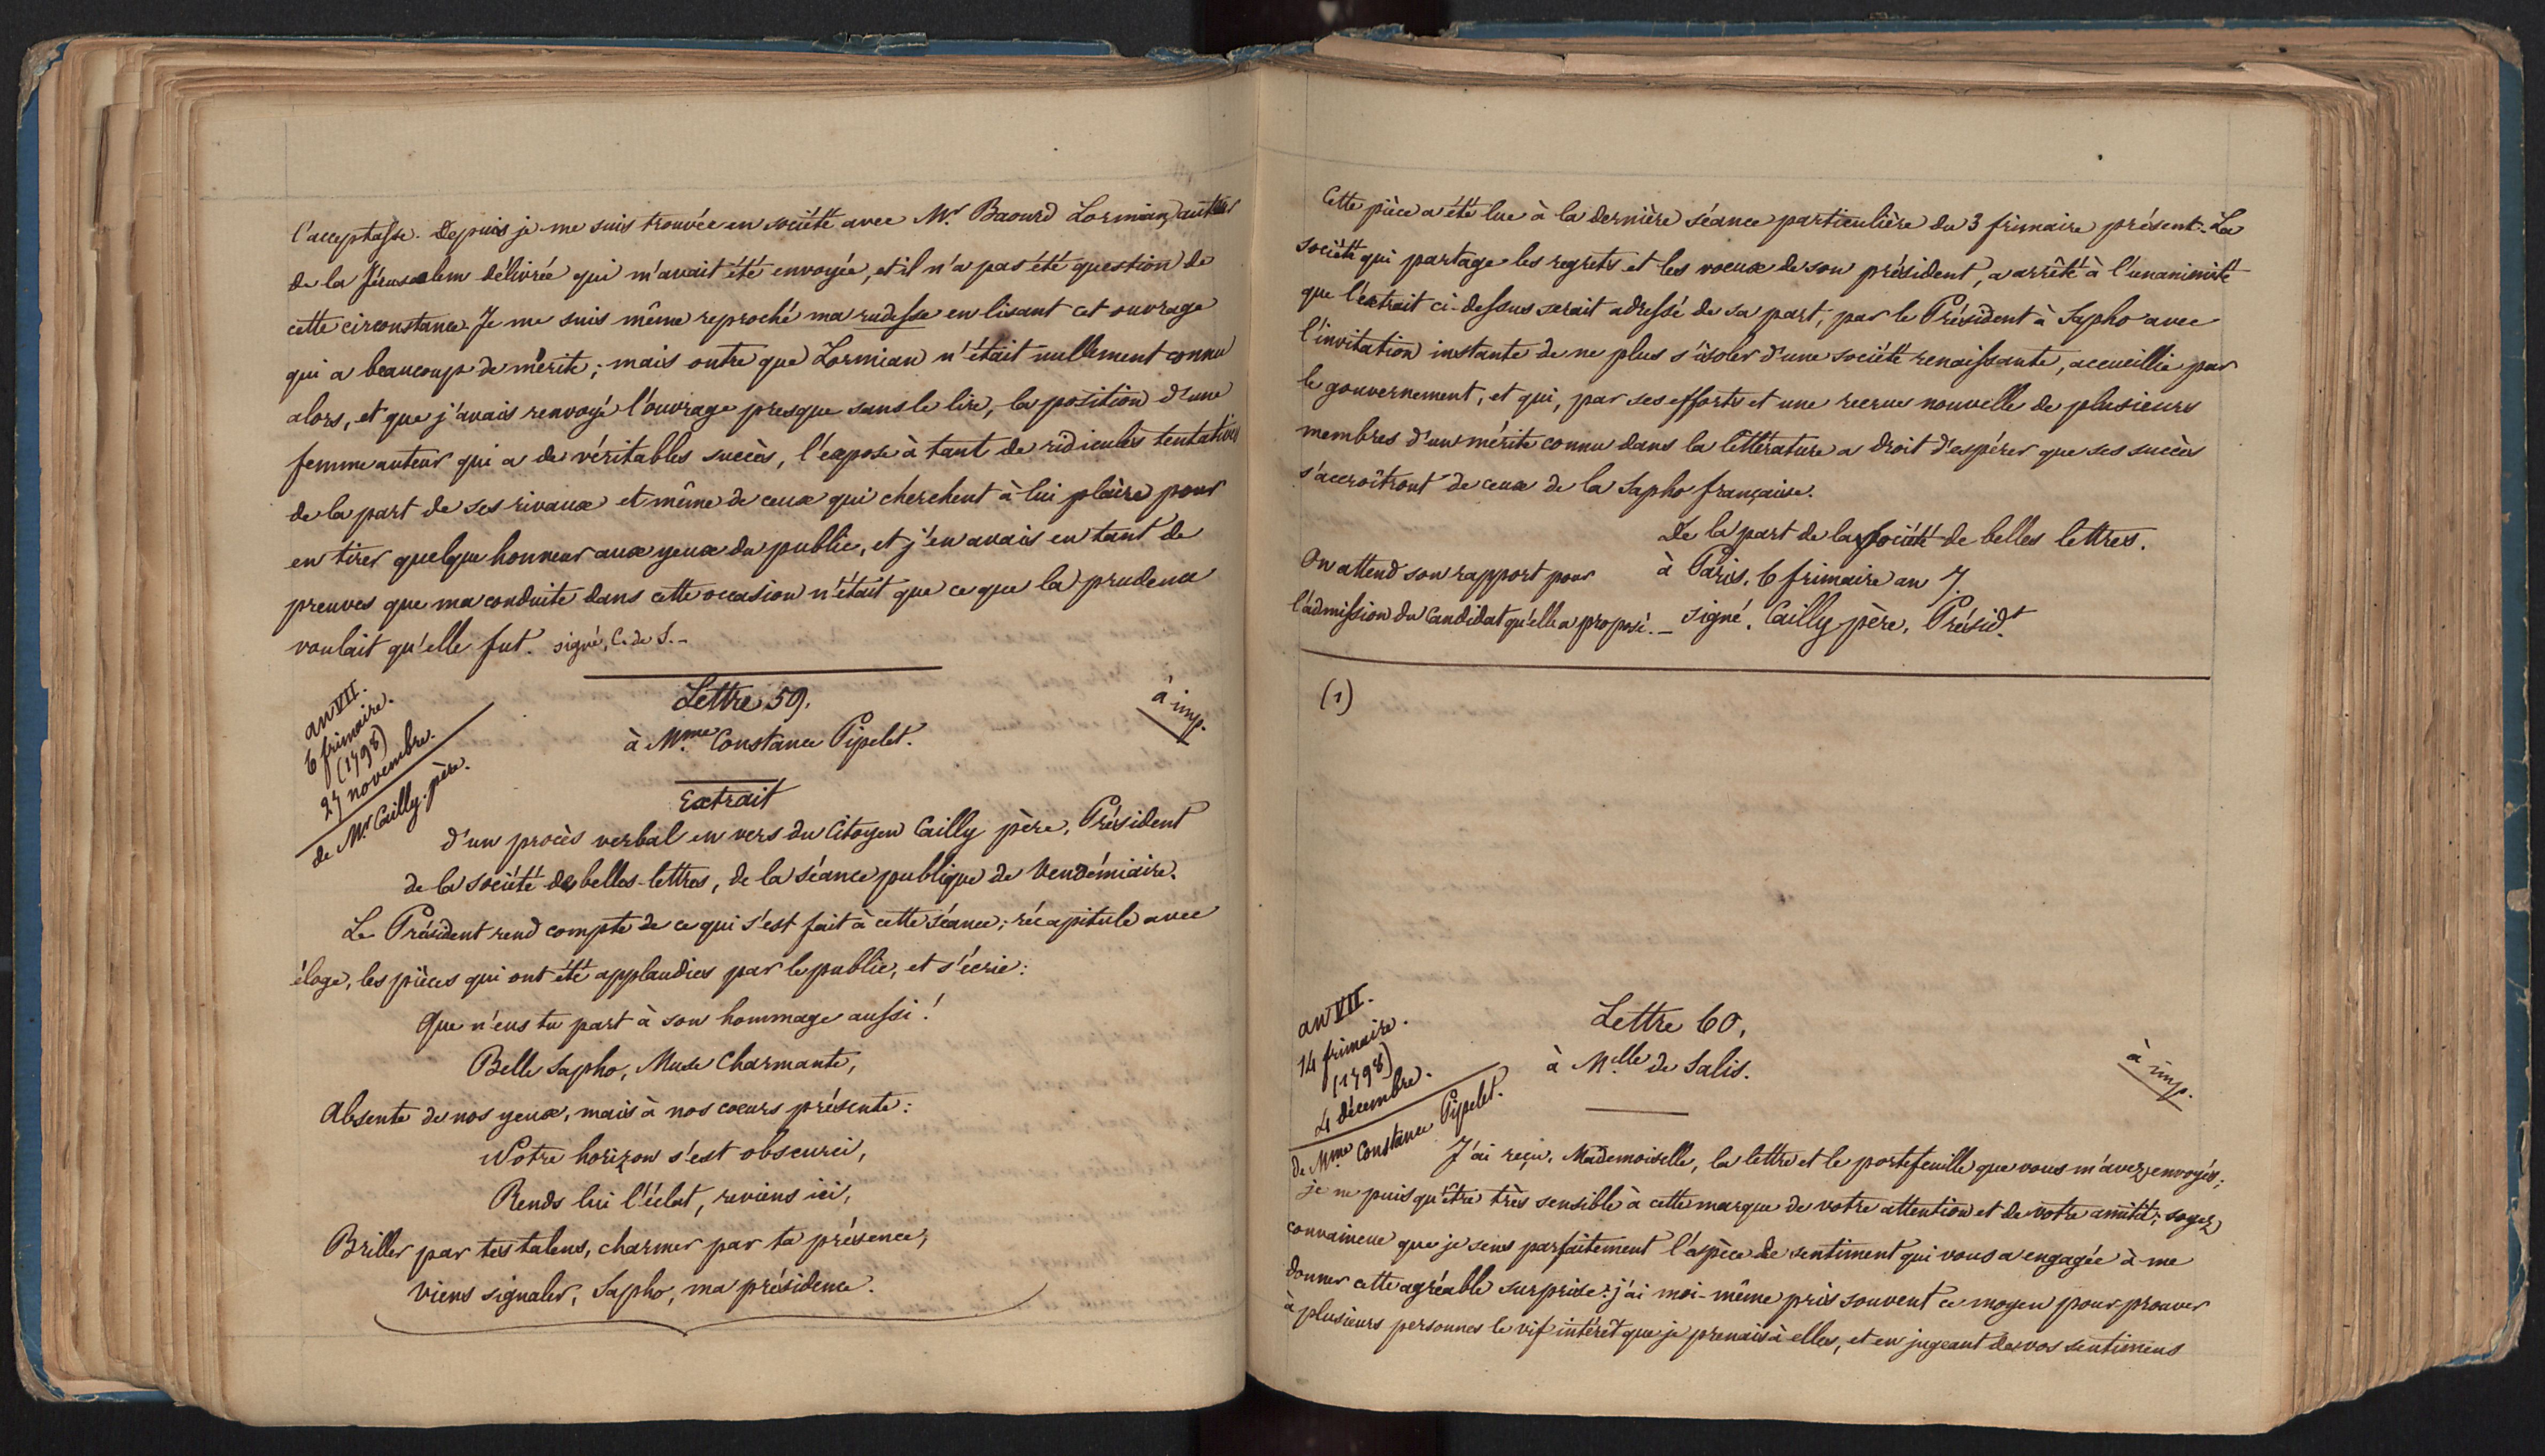 l'acceptasse. Depuis je me suis trouvée en société avec Mr Baourd Lormian, auteur
de la Jérusalem délivrée qui m'avait été envoyée, et il n'a pas été question de
cette circonstance. Je me suis même reproché ma rudesse en lisant cet ouvrage
qui a beaucoup de mérite; mais outre que Lormian n'était nullement connu
alors, et que j'avais renvoyé l'ouvrage presque sans le lire, la position d'une
femme auteur qui a de véritables succès, l'expose à tant de ridicules tentatives
de la part de ses rivaux et même de ceux qui cherchent à lui plaire pour
en tirer quelque honneur aux yeux du public, et j'en avais eu tant de
preuves que ma conduite dans cette occasion n'était que ce que la prudence
voulait qu'elle fut. signé, C. de S. –
an VII.
6 frimaire.
(1798)
27 novembre.
de Mr Cailly père.
Lettre 59.
à Mme Constance Pipelet.
à imp.
Extrait
d'un procès verbal en vers du Citoyen Cailly père, Président
de la société des belles-lettres, de la séance publique de Vendémiaire.
Le Président rend compte de ce qui s'est fait à cette séance; récapitule avec
éloge, les pièces qui ont été applaudies par le public, et s'écrie:
Que n'eus tu part à son hommage aussi!
Belle Sapho, Muse Charmante,
Absente de nos yeux, mais à nos coeurs présente:
Notre horizon s'est obscurci,
Rends lui l'éclat, reviens ici,
Briller par tes talens, charmer par ta présence,
Viens signaler, Sapho, ma présidence.
Cette pièce a été lue à la dernière séance particulière du 3 frimaire présent. La
société qui partage les regrets et les voeux de son président, a arrêté à l'unanimité
que l'extrait ci-dessus serait adressé de sa part, par le Président à Sapho avec
l'invitation instante de ne plus s'isoler d'une société renaissante, accueillie par
le gouvernement, et qui, par ses efforts et une recrue nouvelle de plusieurs
membres d'un mérite connu dans la littérature a droit d'espérer que ses succès
s'accroîtront de ceux de la Sapho française.
De la part de la Société de belles lettres.
à Paris, 6 frimaire an 7.
On attend son rapport pour
l'admission du Candidat qu'elle a proposé. – signé, Cailly père, Présidt
(1)
an VII.
14 frimaire.
(1798)
4 décembre.
de Mme Constance Pipelet.
Lettre 60,
à Melle de Salis.
à imp.
J'ai reçu, Mademoiselle, la lettre et le portefeuille que vous m'avez envoyés;
je ne puis qu'être très sensible à cette marque de votre attention et de votre amitié; soyez
convaincue que je sens parfaitement l'espèce de sentiment qui vous a engagée à me
donner cette agréable surprise: j'ai moi-même pris souvent ce moyen pour prouver
à plusieurs personnes le vif intérêt que je prenais à elles, et en jugeant de vos sentimens